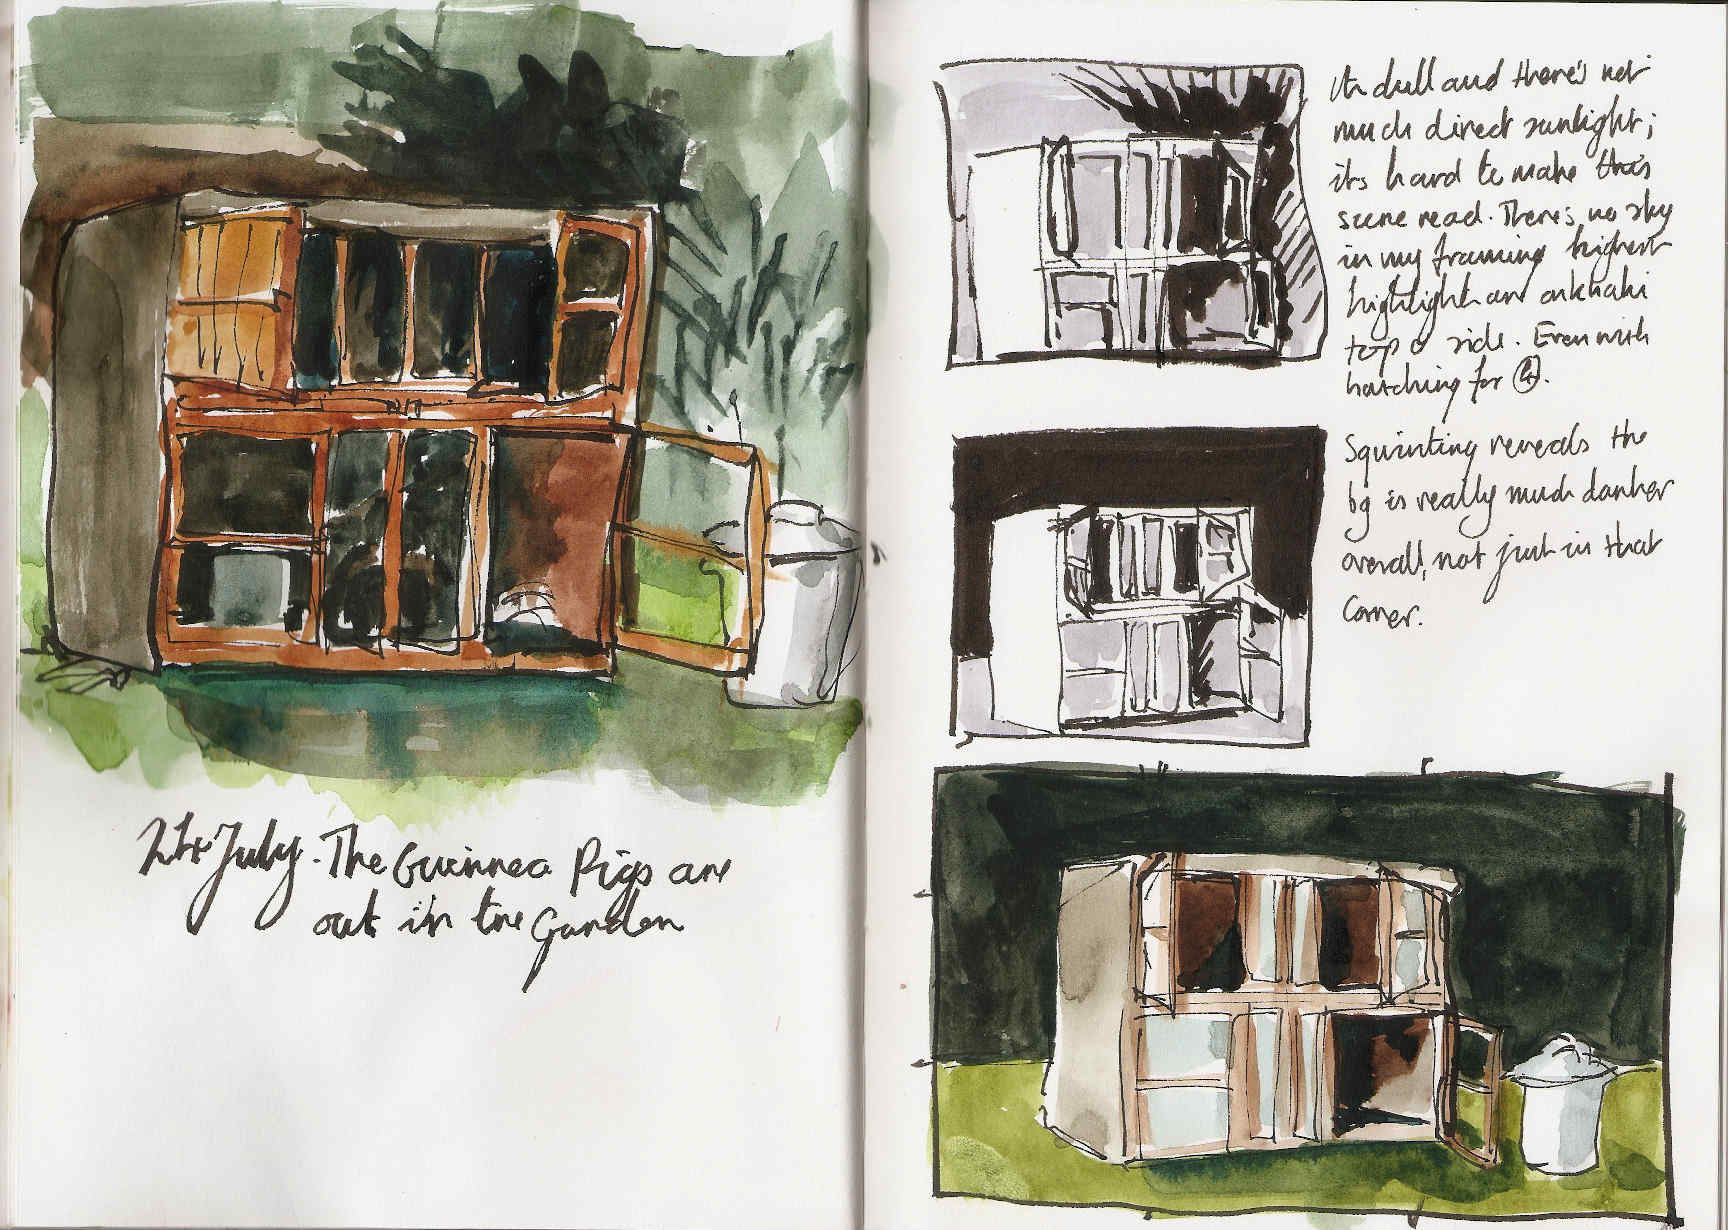 24 July. The Guinnea Pigs are
out in the Garden
Its dull and there's not
much direct sunlight;
its hard to make this
scene read. There's no sky
in my framing highest
highlight are on khaki
top & side. Even with
hatching for 4.
Squinting reveals the
bg is really much darker
overall, not just in that
corner.